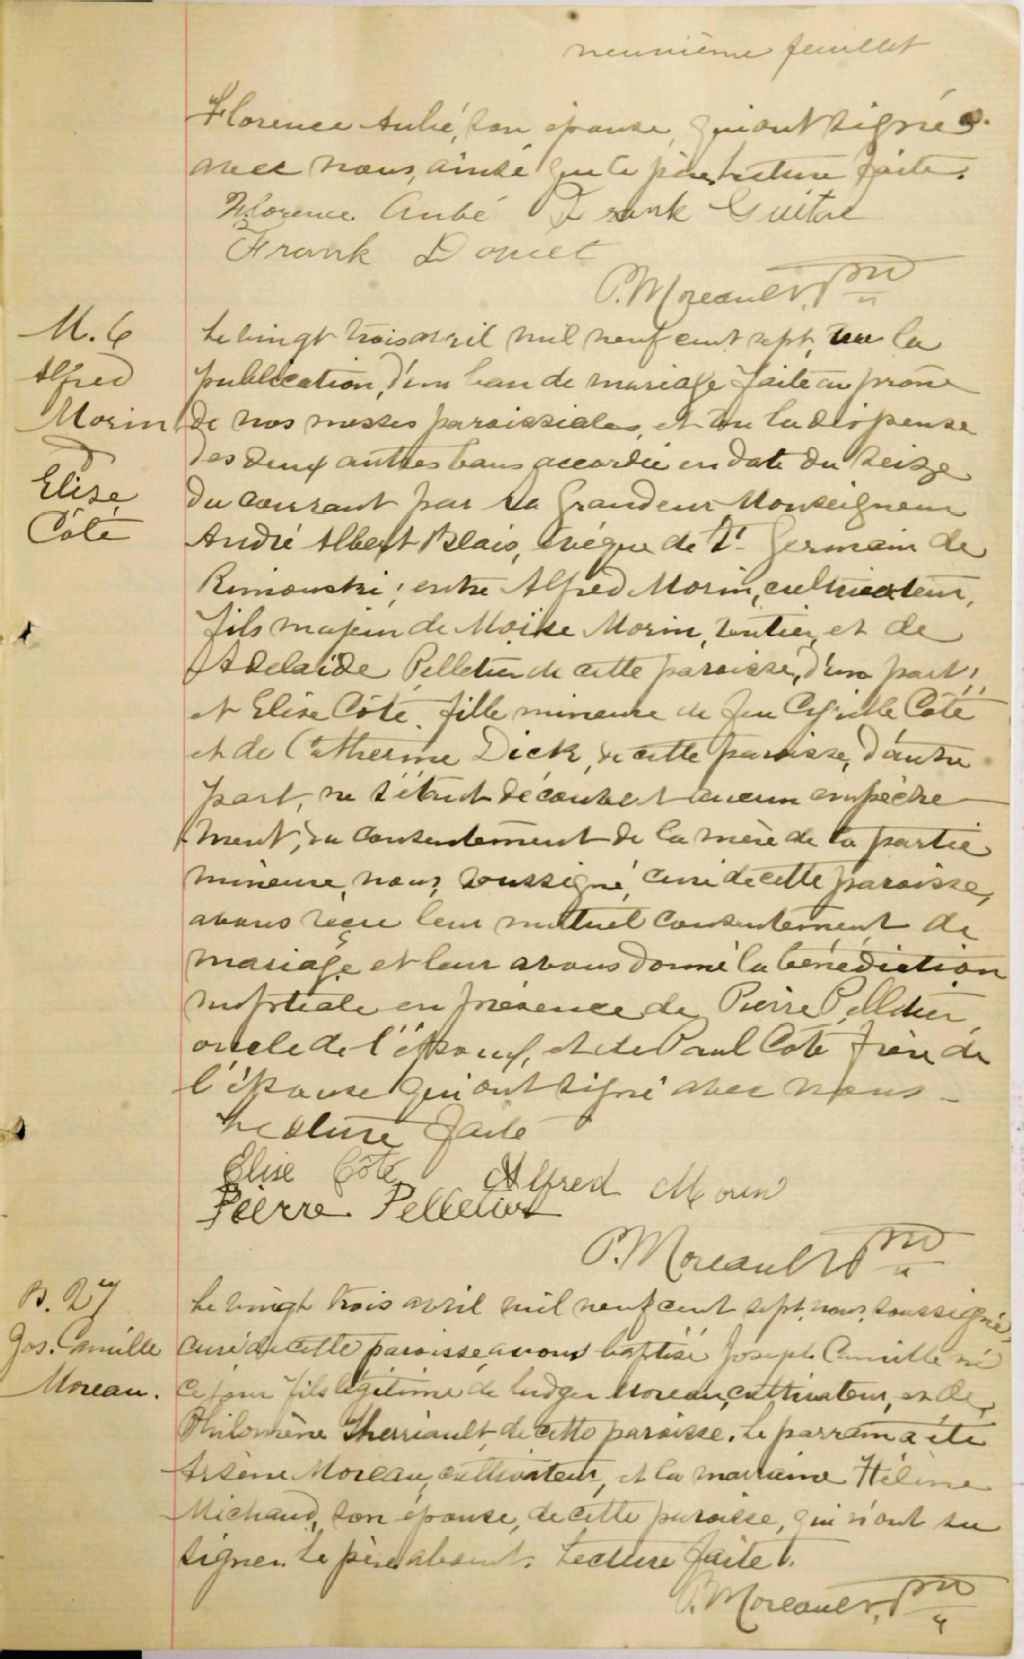 neuvième feuillet
Florence Aubé, son épouse, qui ont signés
avec nous, ainsi que le père. Lecture faite.
Florence Aubé Frank Guitar
Frank Doucet
P. Moreault, Ptre
M. 6
Alfred
Morin
Elise
Côté
Le vingt trois avril mil neuf cent sept, vu la
publication d'un ban de mariage faite au prône
de nos messes paroissiales, et vu la dispense
des deux autres bans accordée en date du seize
du courant par Sa Grandeur Monseigneur
André Albert Blais, évêque de St Germain de
Rimouski; entre Alfred Morin, cultivateur,
fils majeur de Moïse Morin, rentier, et de
Adelaïde Pelletier de cette paroisse, d'une part;
et Elise Côté, fille mineure de feu Cyrille Côté
et de Catherine Dick, de cette paroisse, d'autre
part, ne s'étant découvert aucun empêche
ment, du consentement de la mère de la partie
mineure, nous, soussigné, curé de cette paroisse,
avons reçu leur mutuel consentement de
mariage et leur avons donné la bénédiction
nuptiale en présence de Pierre Pelletier,
oncle de l'époux, et de Paul Côté frère de
l'épouse qui ont signé avec nous -
Lecture faite
Elise Côté Alfred Morin
Pierre Pelletier
P. Moreault Ptre
B. 27
Jos. Camille
Moreau.
Le vingt trois avril mil neuf cent sept, nous, soussigné,
curé de cette paroisse avons baptisé Joseph Camille né
ce jour fils légitime de Ludger Moreau, cultivateur, et de
Philomène Therriault, de cette paroisse. Le parrain a été
Arsène Moreau, cultivateur, et la marraine Hélène
Michaud, son épouse, de cette paroisse, qui n'ont su
signer. Le père absent. Lecture faite.
P. Moreault, Ptre